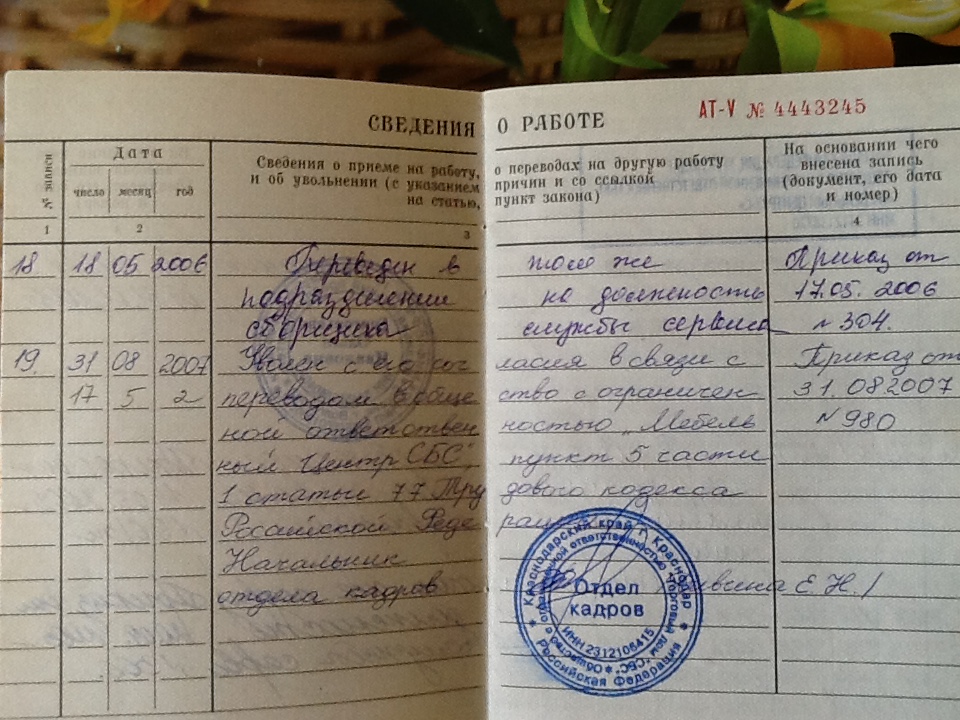 СВЕДЕНИЯ О РАБОТЕ
АТ-V № 4443245
№ записи
Дата
число месяц год
Сведения о приеме на работу, о переводах на другую работу
и об увольнении (с указанием причин и со ссылкой
на статью, пункт закона)
На основании чего
внесена запись
(документ, его дата
и номер)
1 2 3 4
18 18 05 2006 Переведен в том же Приказ от
подразделении на должность 17.05. 2006
сборщика службы сервиса N 304.
19. 31 08 2007 Уволен с его согласия в связи с Приказ от
17 5 2 переводом в общество с ограничен 31.08.2007
ной ответственностью „Мебель N 980
ный Центр СБС", пункт 5 части
1 статьи 77 Трудового кодекса
Российской Федерации
Начальник
отдела кадров Е.Н./
Краснодарский край г. Краснодар
Российская Федерация
"Торговый дом "СБС"
Отдел
кадров
ИНН 2312106415